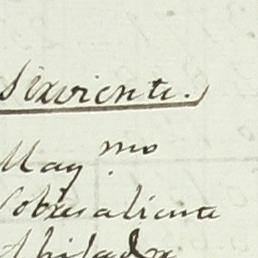 Sirviente.
May.mo
Sobresaliente